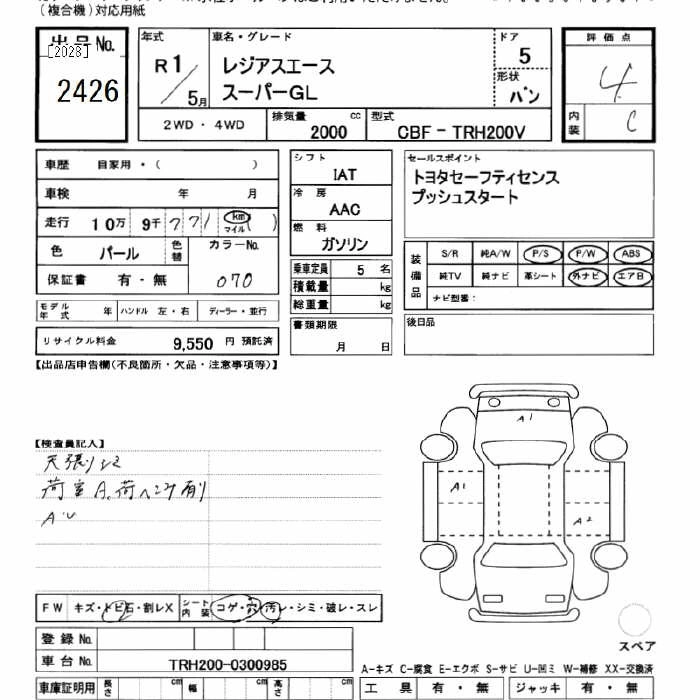 (複合機)対応用紙
出品No.
[2023]
2426
年式
R1/5月
車名・グレード
レジアスエース
スーパーGL
ドア
5
形状
バン
評価点
4
内装
C
2WD・4WD
排気量 2000 cc
型式 CBF-TRH200V
車歴 自家用・( )
車検 年 月
走行 10万 9千 771 (km マイル)( )
色 パール 色替 カラーNo. 070
保証書 有・無
モデル年式 年 ハンドル 左・右 ディーラー・並行
リサイクル料金 9,550 円 預託済
シフト
IAT
冷房
AAC
燃料
ガソリン
乗車定員 5 名
積載量 kg
総重量 kg
書類期限
月 日
セールスポイント
トヨタセーフティセンス
プッシュスタート
装備品
S/R 純A/W P/S P/W ABS
純TV 純ナビ 革シート 外ナビ エアB
ナビ型番:
後日品
【出品店申告欄(不良箇所・欠品・注意事項等)】
【検査員記入】
天張りシミ
荷室A、荷ヘコミ有り
A1
A1
A2
FW キズ・トビ石・割レX シート内装 コゲ・穴・汚レ・シミ・破レ・スレ
登録No.
車台No. TRH200-0300985
車庫証明用 長さ cm 幅 cm 高さ cm
スペア
A-キズ C-腐食 E-エクボ S-サビ U-凹ミ W-補修 XX-交換済
工具 有・無 ジャッキ 有・無